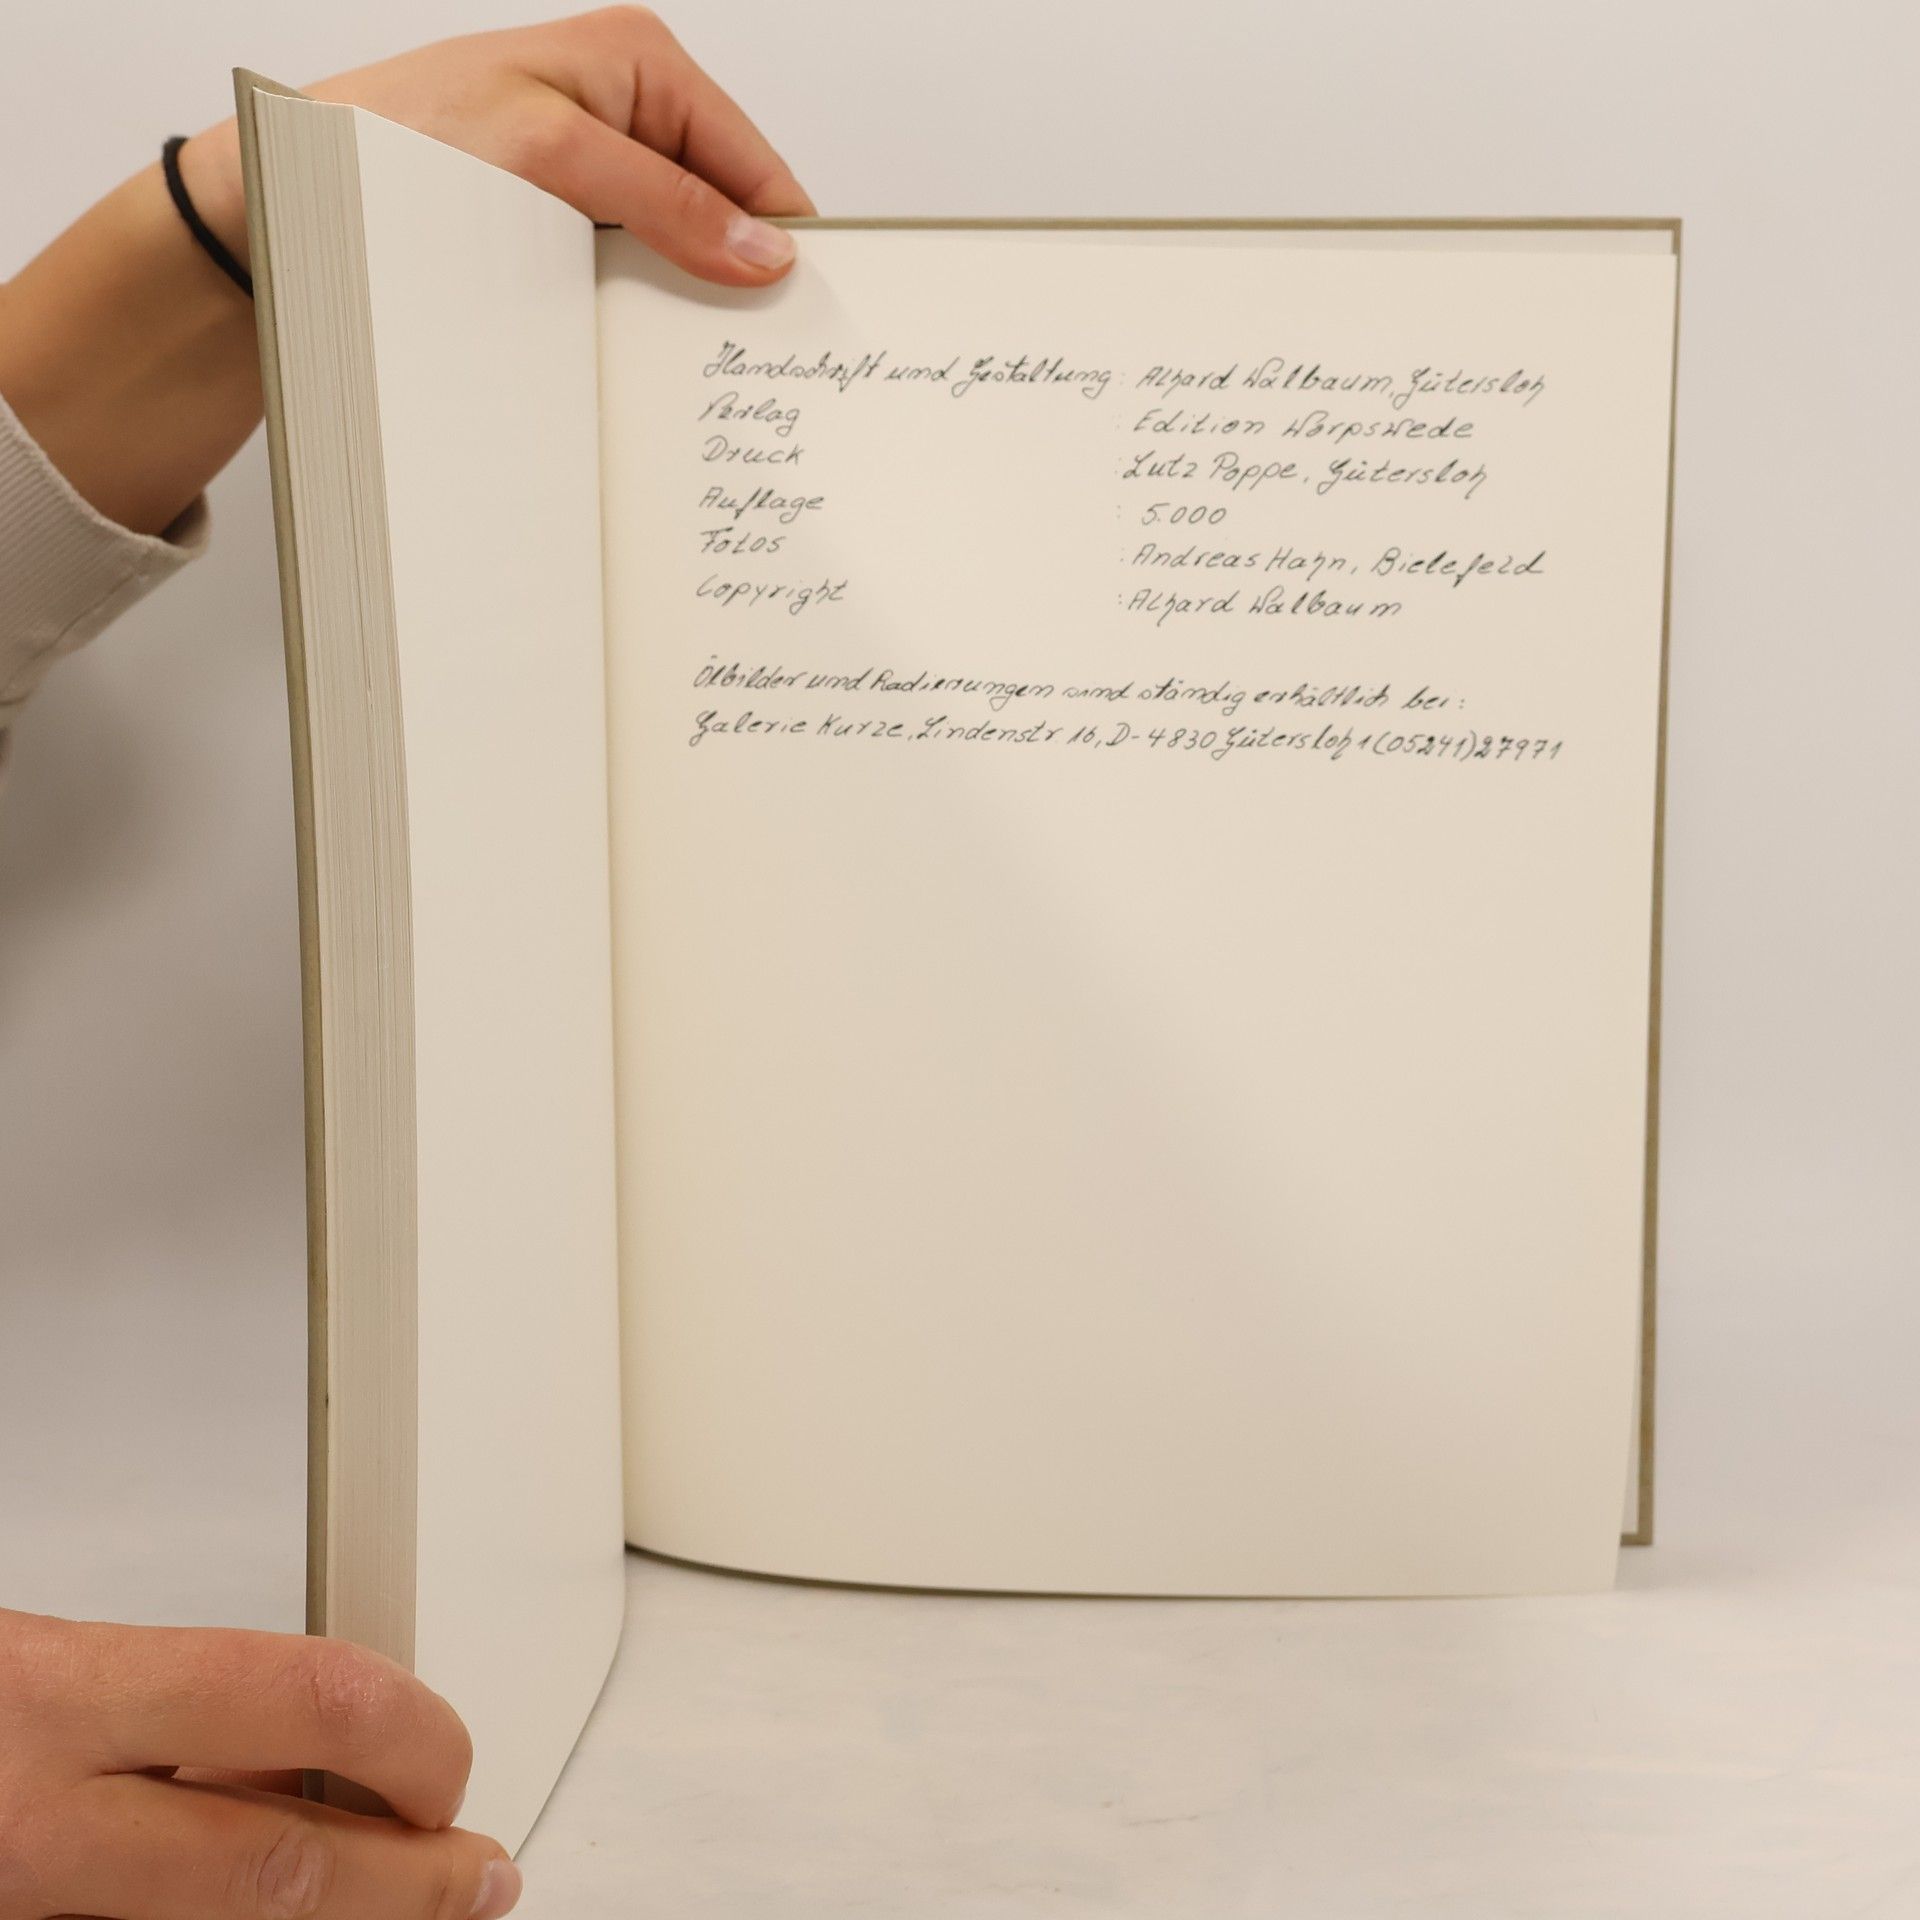 Handschrift und Gestaltung : Alhard Walbaum, Gütersloh
Verlag : Edition Worpswede
Druck : Lutz Poppe, Gütersloh
Auflage : 5.000
Fotos : Andreas Hahn, Bielefeld
Copyright : Alhard Walbaum
Ölbilder und Radierungen sind ständig erhältlich bei :
Galerie Kurze, Lindenstr. 16, D-4830 Gütersloh 1 (05241) 27971